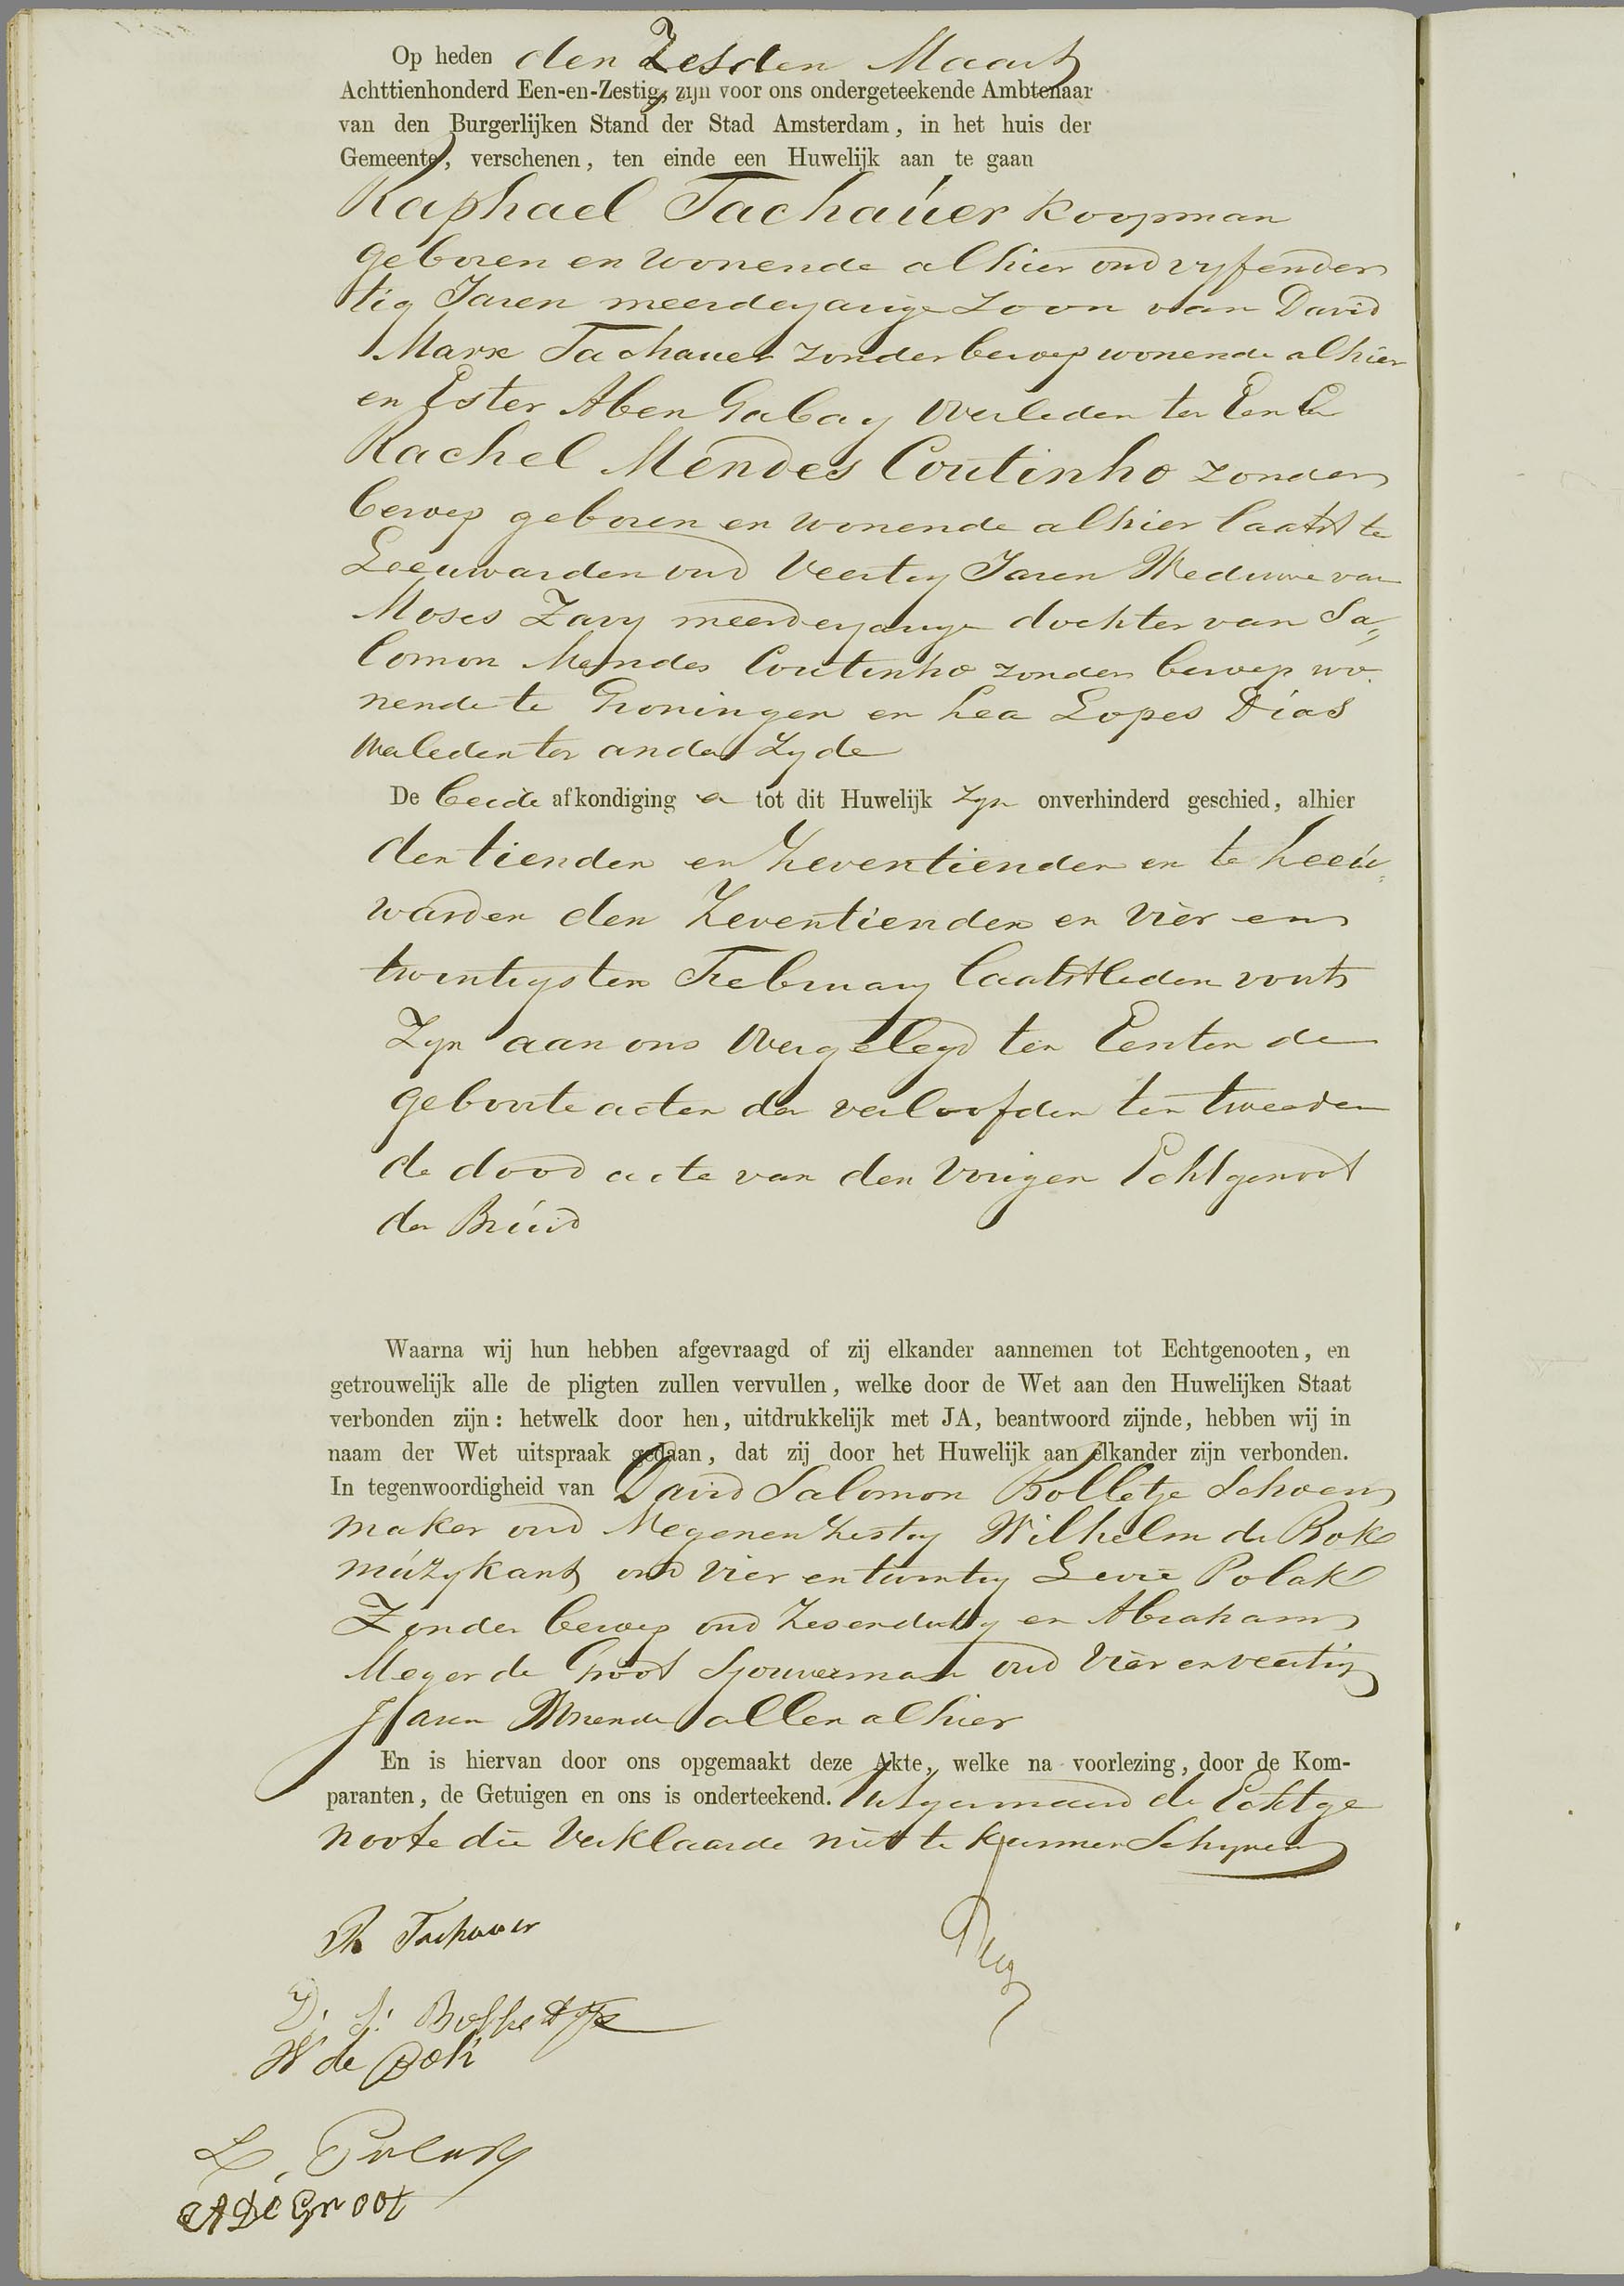 Op heden den Zesden Maart
Achttienhonderd Een-en-Zestig, zijn voor ons ondergeteekende Ambtenaar
van den Burgerlijken Stand der Stad Amsterdam, in het huis der
Gemeente, verschenen, ten einde een Huwelijk aan te gaan
Raphael Tachauer koopman
geboren en wonende alhier oud vyfender
tig Jaren meerderjarige zoon van David
Marx Tachauer zonder beroep wonende alhier
en Ester Aben Gabay Overleden ter Eener
Rachel Mendes Coutinho zonder
beroep geboren en wonende alhier laatst te
Leeuwarden oud Veertig Jaren Weduwe van
Moses Zavy meerderjarige dochter van Sa„
lomon Mendes Coutinho zonder beroep wo
nende te Groningen en Lea Lopes Dias
Overleden ter andere Zyde
De beide afkondiging en tot dit Huwelijk zyn onverhinderd geschied, alhier
den tienden en Zeventienden en te Leeu„
warden den Zeventienden en Vier en
twintigsten February laatstleden voorts
Zyn aan ons Overgelegd ten Eersten de
geboorte acten der verloofden ten tweeden
de dood acte van den Vorigen Echtgenoot
der Bruid
Waarna wij hun hebben afgevraagd of zij elkander aannemen tot Echtgenooten, en
getrouwelijk alle de pligten zullen vervullen, welke door de Wet aan den Huwelijken Staat
verbonden zijn: hetwelk door hen, uitdrukkelijk met JA, beantwoord zijnde, hebben wij in
naam der Wet uitspraak gedaan, dat zij door het Huwelijk aan elkander zijn verbonden.
In tegenwoordigheid van David Salomon Bolletje Schoen
maker oud Negenenzestig Wilhelm de Bok
muzykant oud Vier en twintig Levie Polak
Zonder beroep oud Zesendertig en Abraham
Meyer de Groot Sjouwerman oud Vier en veertig
Jaren Wonende allen alhier
En is hiervan door ons opgemaakt deze Akte, welke na voorlezing, door de Kom-
paranten, de Getuigen en ons is onderteekend. Uitgenomen de Echtge
noote die Verklaarde niet te kunnen Schryven
R Tachauer
D. S. Bolletje
W de Bok
L. Polak
A De Groot